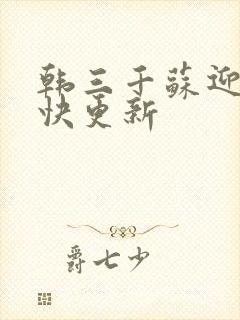 韩三千苏迎
快更新
爵七少